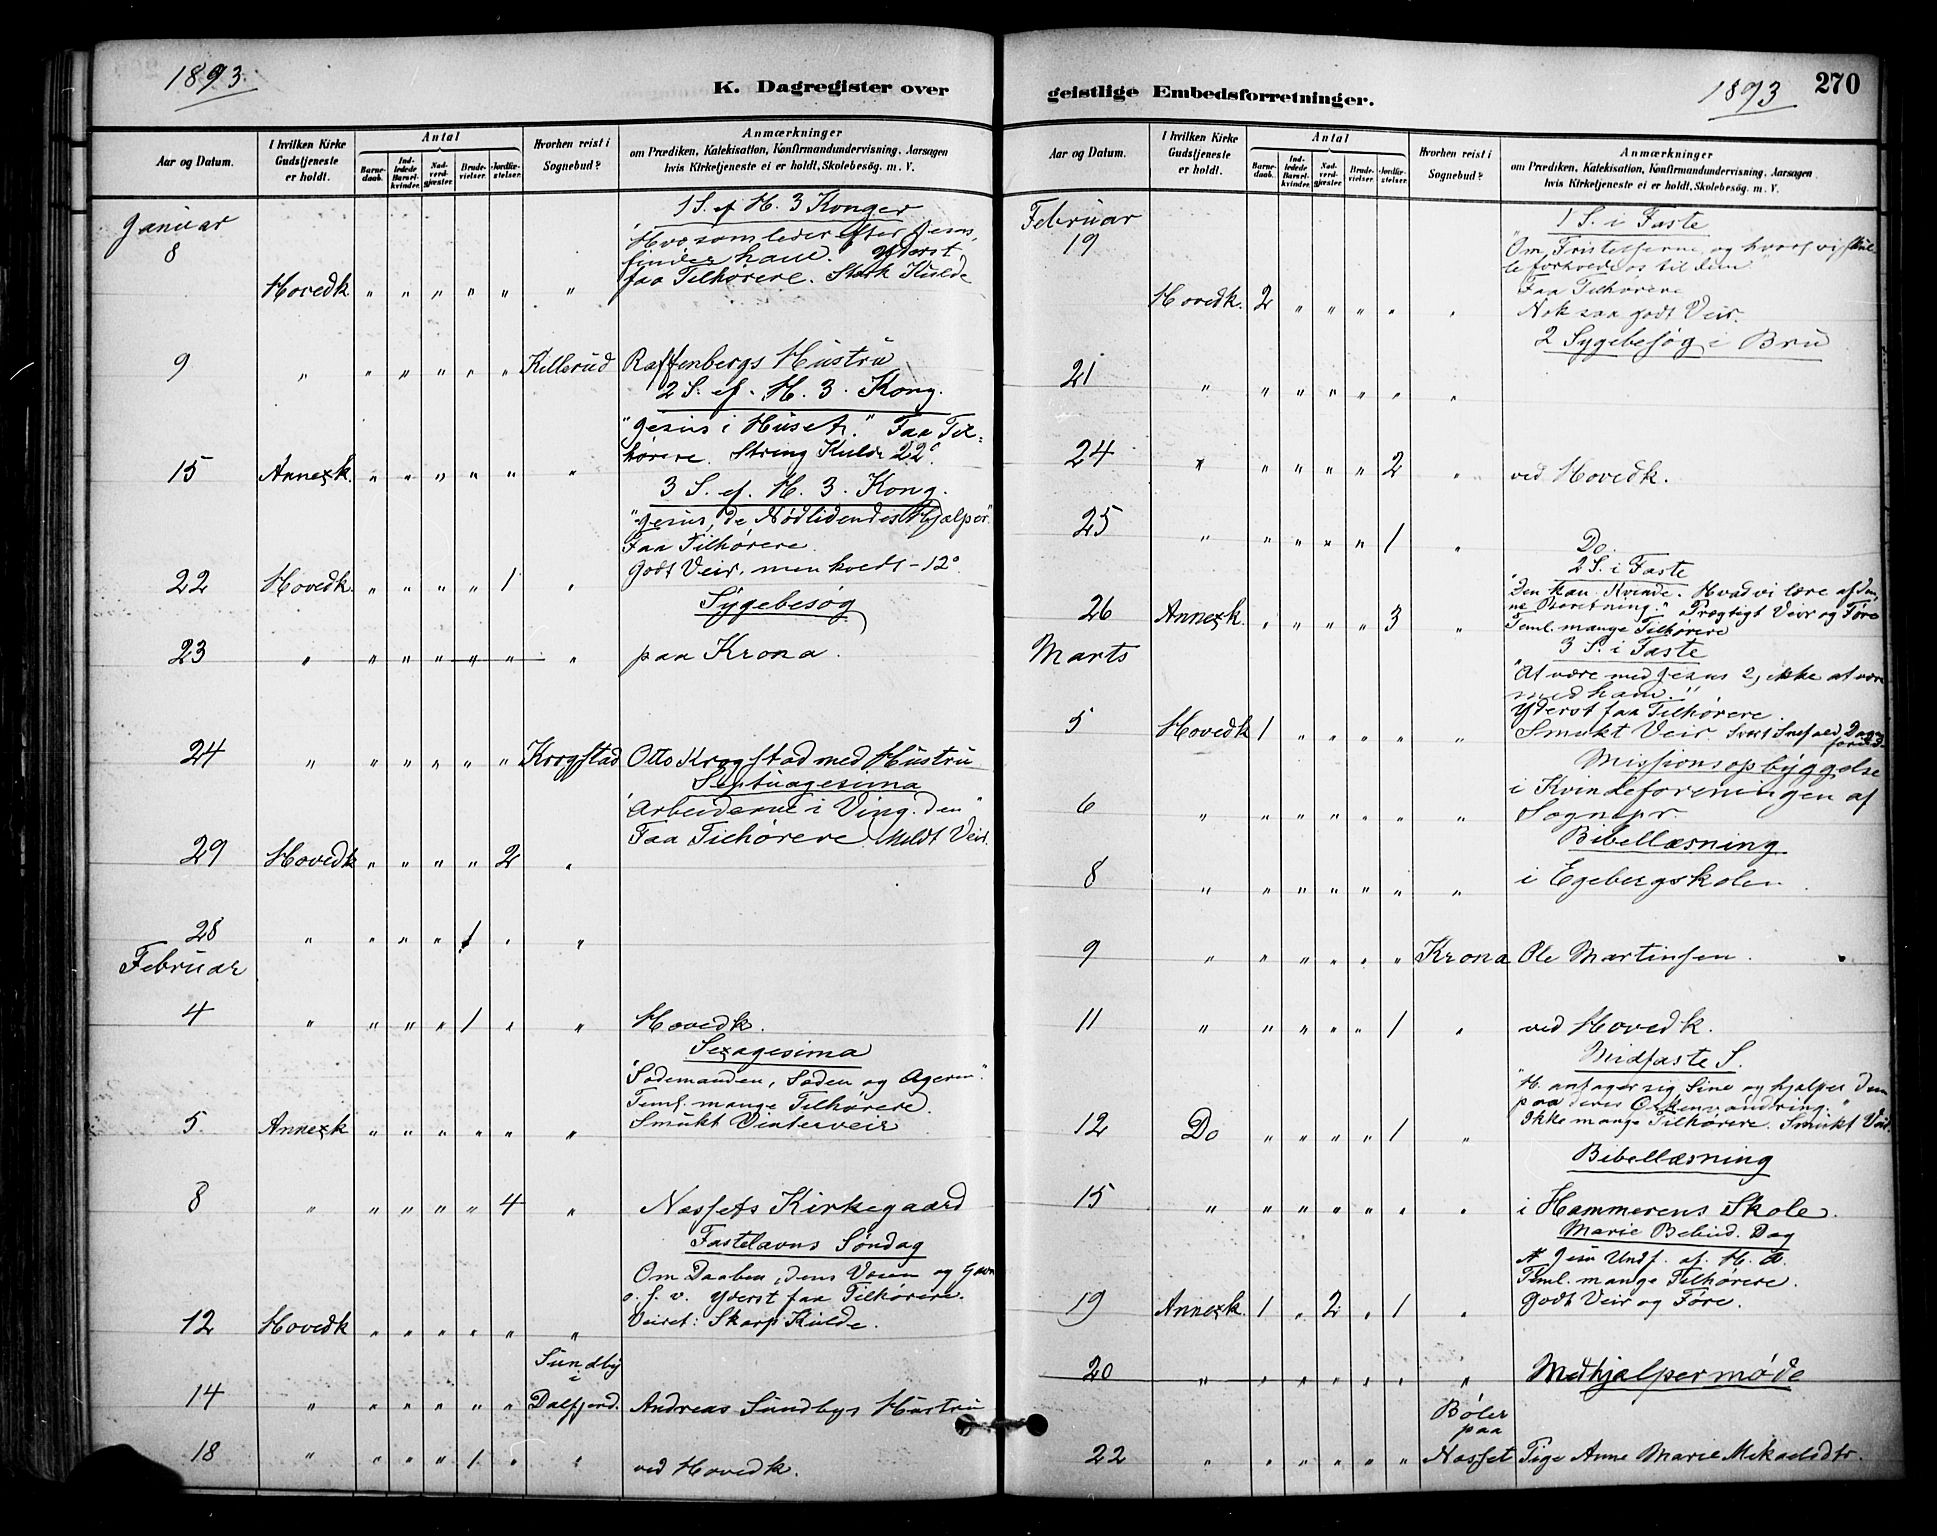 1893
K. Dagregister over
Aar og Datum.
I hvilken Kirke Gudstjeneste er holdt.
Antal
Barnedaab.
Indledede Barselkvinder.
Nadverdgjæster.
Brudevielser.
Jordfæstelser.
Hvorhen reist i Sognebud?
Anmærkninger
om Prædiken, Katekisation, Konfirmandundervisning, Aarsagen
hvis Kirketjeneste ei er holdt, Skolebesøg. m. V.
Januar
1 S. ef H. 3 Konger
8
Hvo som leder efter Jesus,
finder ham. Yderst
faa Tilhørere. Stærk Kulde
Hovedk " " " " " "
9 " " " " " " Killerud Raffenbergs Hustru
2 S. ef. H. 3. Kong.
"Jesus i Huset." Faa Til=
hørere. String Kulde 22°.
15 Annexk. " " " " " "
3 S. ef. H. 3. Kong.
"Jesus, de Nødlidendes Hjælper".
Faa Tilhørere.
Godt Veir, men kvedt - 12°
22 Hovedk. " " " " 1 "
Sygebesøg
23 " " " " " " " paa Krona.
24 " " " " " " Krogstad Otto Krogstad med Hustru
Septuagesima
"Arbeiderne i Ving. den"
Faa Tilhørere. Mildt Veir.
29 Hovedk " " " " 2 "
28 " " " " 1 " "
Februar
4 " " " " 1 " " Hovedk.
Sexagesima
"Sædemanden, Sæden og Ageren".
Teml. mange Tilhørere.
Smukt Vinterveir
5 Annexk " " " " " "
8 " " " " " 4 " Næssets Kirkegaard
Fastelavns Søndag
Om Daaben, dens Væsen og Gavn
o. s. v. Yderst faa Tilhørere.
Veiret: Skarp Kulde.
12 Hovedk " " " " " "
Sundby
i
14 " " " " " " Dalfjerd. Andreas Sundbys Hustru
18 " " " " 1 " " ved Hovedk.
geistlige Embedsforretninger.
1893
270
Aar og Datum.
I hvilken Kirke Gudstjeneste er holdt.
Antal
Barnedaab.
Indledede Barselkvinder.
Nadverdgjæster.
Brudevielser.
Jordfæstelser.
Hvorhen reist i Sognebud?
Anmærkninger
om Prædiken, Katekisation, Konfirmandundervisning, Aarsagen
hvis Kirketjeneste ei er holdt, Skolebesøg. m. V.
Februar
1 S. i Faste
19
"Om Fristelserne og hvorf vi skul
le forhvede os til dem"
Faa Tilhørere
Nok saa godt Veir.
Hovedk. 2 " " " " "
2 Sygebesøg i Bru
21 " " " " " " "
24 " " " " " 2 " ved Hovedk.
25 " " " " " 1 " Do.
2 S. i Faste
"Den Kan. Kvinde. Hvad vi lære af den
ne Beretning." Prægtigt Veir og Føre
26 Annexk. " " " " 3 " Teml. mange Tilhørere
Marts
3 S. i Faste
"At være med Jesus 2, ikke at være
med ham."
Yderst faa Tilhørere.
5 Hovedk 1 " " " " " Smukt Veir. Svært Snefald Dagen
forud.
Missionsopbyggelse
i Kvindeforeningen af
6 " " " " " " " Sognepr.
Bibellæsning
8 " " " " " " " i Egebergskolen
9 " " " " " " Krona Ole Martinsen.
11 " " " " " 1 " ved Hovedk.
Midfaste S.
"H. antager sig Sine og hjælper dem
paa deres Ørkenvandring."
Ikke mange Tilhørere. Smukt Veir.
12 Do " " " " 1 "
Bibellæsning
15 " " " " " " " i Hammerens Skole.
Marie Bebud. Dag
Jesu Undf. af H. A.
Teml. mange Tilhørere.
19 Annexk 1 " 2 " 1 " Godt Veir og Føre.
20 " " " " " " " Medhjælpermøde
Bøler
paa
22 " " " " " " Næsset Pige Anne Marie Mikaelsdtr.